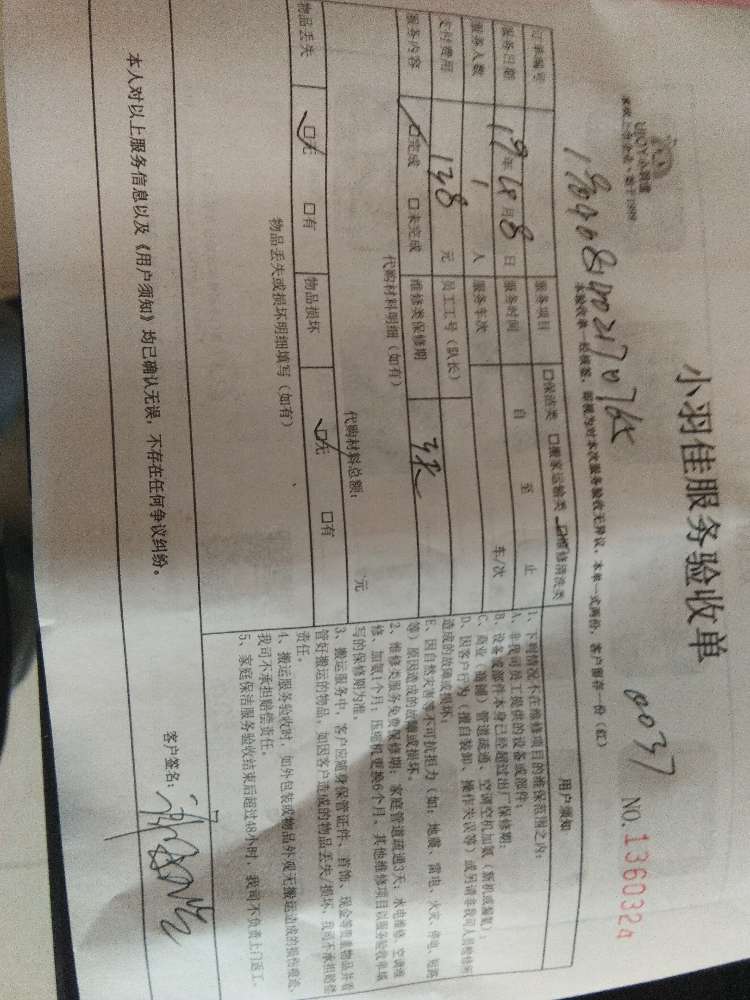 小羽佳服务验收单
0037
NO.1360324
本验收单一经核签，即视为对本次服务验收无异议。本单一式两份，客户留存一份（红）
订单编号
服务项目 □保洁类 □搬家运输类 □维修清洗类
服务日期 19年 月8日 服务时间 自 至 止
服务人数 1 人 服务车次 车/次
支付费用 138 元 员工工号（队长）
服务内容 □完成 □未完成 维修类保修期 3天
代购材料明细（如有）
代购材料总额： 元
物品丢失 □无 □有 物品损坏 □无 □有
物品丢失或损坏明细填写（如有）
用户须知
1、下列情况不在维修项目的维保范围之内：
A、非我司员工提供的设备或部件；
B、设备或部件本身已经超过出厂保修期；
C、商业（商铺）管道疏通、空调空机加氨（新机或漏氟）；
D、因客户行为（擅自装卸、操作失误等）或另请非我司人员维修所
造成的故障或损坏；
E、因自然灾害等不可抗拒力（如：地震、雷电、火灾、停电、短路
等）原因造成的故障或损坏。
2、维修类服务免费保修期：家庭管道疏通3天；水电维修、空调维
修、加氨1个月；压缩机更换6个月。其他维修项目以服务验收单填
写的保修期为准。
3、搬运服务中，客户应随身保管证件、首饰、现金等贵重物品并看
管好搬运的物品，如因客户造成的物品丢失/损坏，我司不承担赔偿
责任。
4、搬运服务验收时，如外包装或物品外观无搬运造成的损伤痕迹，
我司不承担赔偿责任。
5、家庭保洁服务验收结束后超过48小时，我司不负责上门返工。
本人对以上服务信息以及《用户须知》均已确认无误，不存在任何争议纠纷。
客户签名：